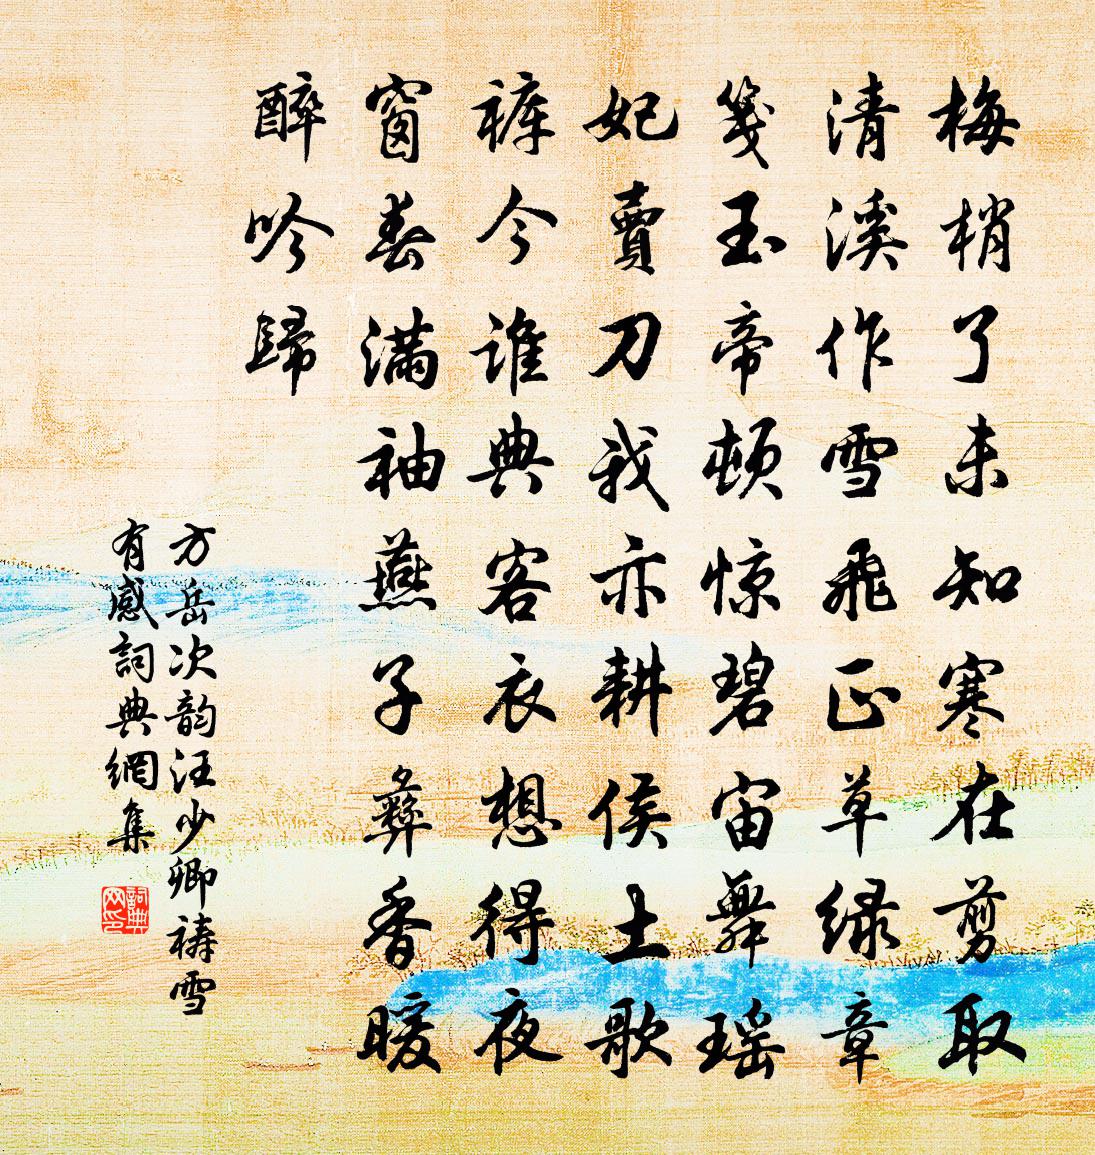 梅梢了未知寒在剪取
清溪作雪飛正草绿章
箋玉帝頓惊碧宙舞瑶
妃賣刀我亦耕侯土歌
裤今谁典客衣想得夜
窗春满袖燕子彝香暖
醉吟歸
方岳次韵汪少卿祷雪
有感詞典網集
詞典网印